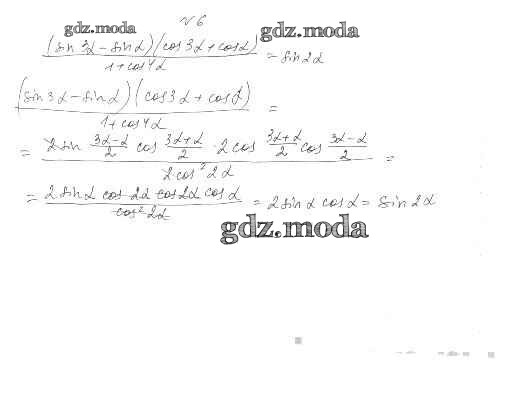 № 6
gdz.moda gdz.moda
(sin 3α - sin α)(cos 3α + cos α) / 1 + cos 4α = sin 2α
(sin 3α - sin α)(cos 3α + cos α) / 1 + cos 4α =
= 2 sin (3α - α)/2 cos (3α + α)/2 · 2 cos (3α + α)/2 cos (3α - α)/2 / 2 cos² 2α =
= 2 sin α cos 2α cos 2α cos α / cos² 2α = 2 sin α cos α = sin 2α
gdz.moda